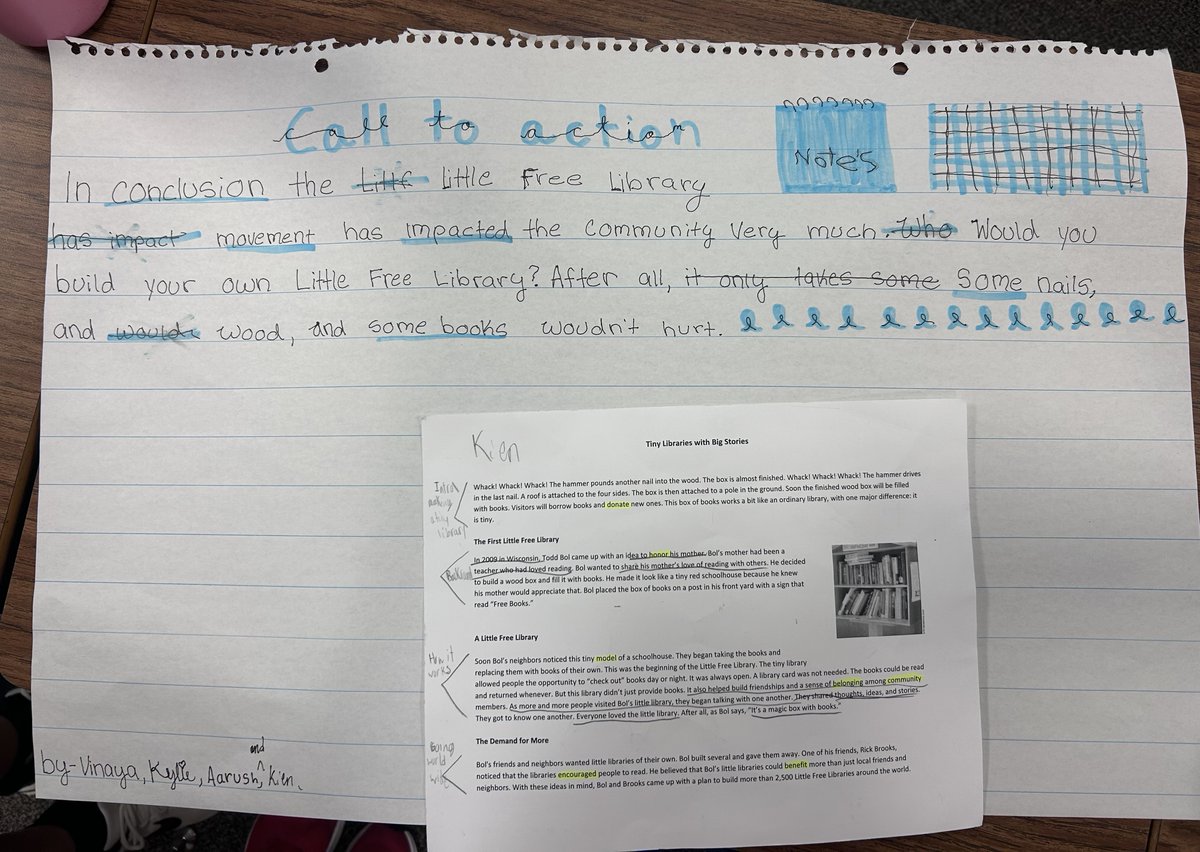 Call to action
Note's
In conclusion the Little Little Free Library
has impact movement has impacted the community very much. Who Would you
build your own Little Free Library? After all, it only takes some Some nails,
and would wood, and some books woudn't hurt.
by- Vinaya, Kylie, Aarush, and Kien.
Kien
Tiny Libraries with Big Stories
Intro
a tiny
library
Whack! Whack! Whack! The hammer pounds another nail into the wood. The box is almost finished. Whack! Whack! Whack! The hammer drives
in the last nail. A roof is attached to the four sides. The box is then attached to a pole in the ground. Soon the finished wood box will be filled
with books. Visitors will borrow books and donate new ones. This box of books works a bit like an ordinary library, with one major difference: it
is tiny.
The First Little Free Library
In 2009 in Wisconsin, Todd Bol came up with an idea to honor his mother. Bol's mother had been a
teacher who had loved reading. Bol wanted to share his mother's love of reading with others. He decided
to build a wood box and fill it with books. He made it look like a tiny red schoolhouse because he knew
his mother would appreciate that. Bol placed the box of books on a post in his front yard with a sign that
read "Free Books."
A Little Free Library
How it
works
Soon Bol's neighbors noticed this tiny model of a schoolhouse. They began taking the books and
replacing them with books of their own. This was the beginning of the Little Free Library. The tiny library
allowed people the opportunity to "check out" books day or night. It was always open. A library card was not needed. The books could be read
and returned whenever. But this library didn't just provide books. It also helped build friendships and a sense of belonging among community
members. As more and more people visited Bol's little library, they began talking with one another. They shared thoughts, ideas, and stories.
They got to know one another. Everyone loved the little library. After all, as Bol says, "It's a magic box with books."
The Demand for More
Going
world
wide
Bol's friends and neighbors wanted little libraries of their own. Bol built several and gave them away. One of his friends, Rick Brooks,
noticed that the libraries encouraged people to read. He believed that Bol's little libraries could benefit more than just local friends and
neighbors. With these ideas in mind, Bol and Brooks came up with a plan to build more than 2,500 Little Free Libraries around the world.